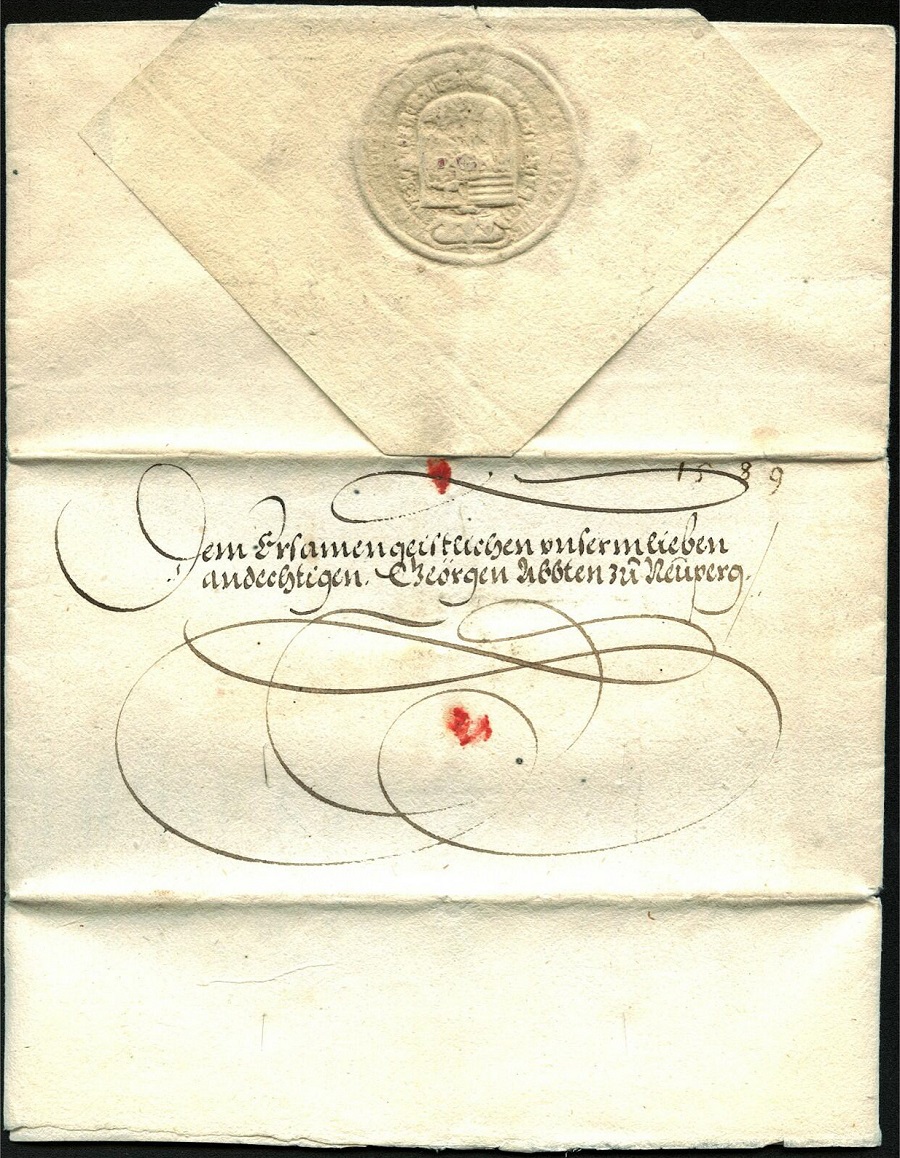 1589
Dem Ersamen geistlichen vnserm lieben
andechtigen. Geörgen Abbten zů Neüperg.